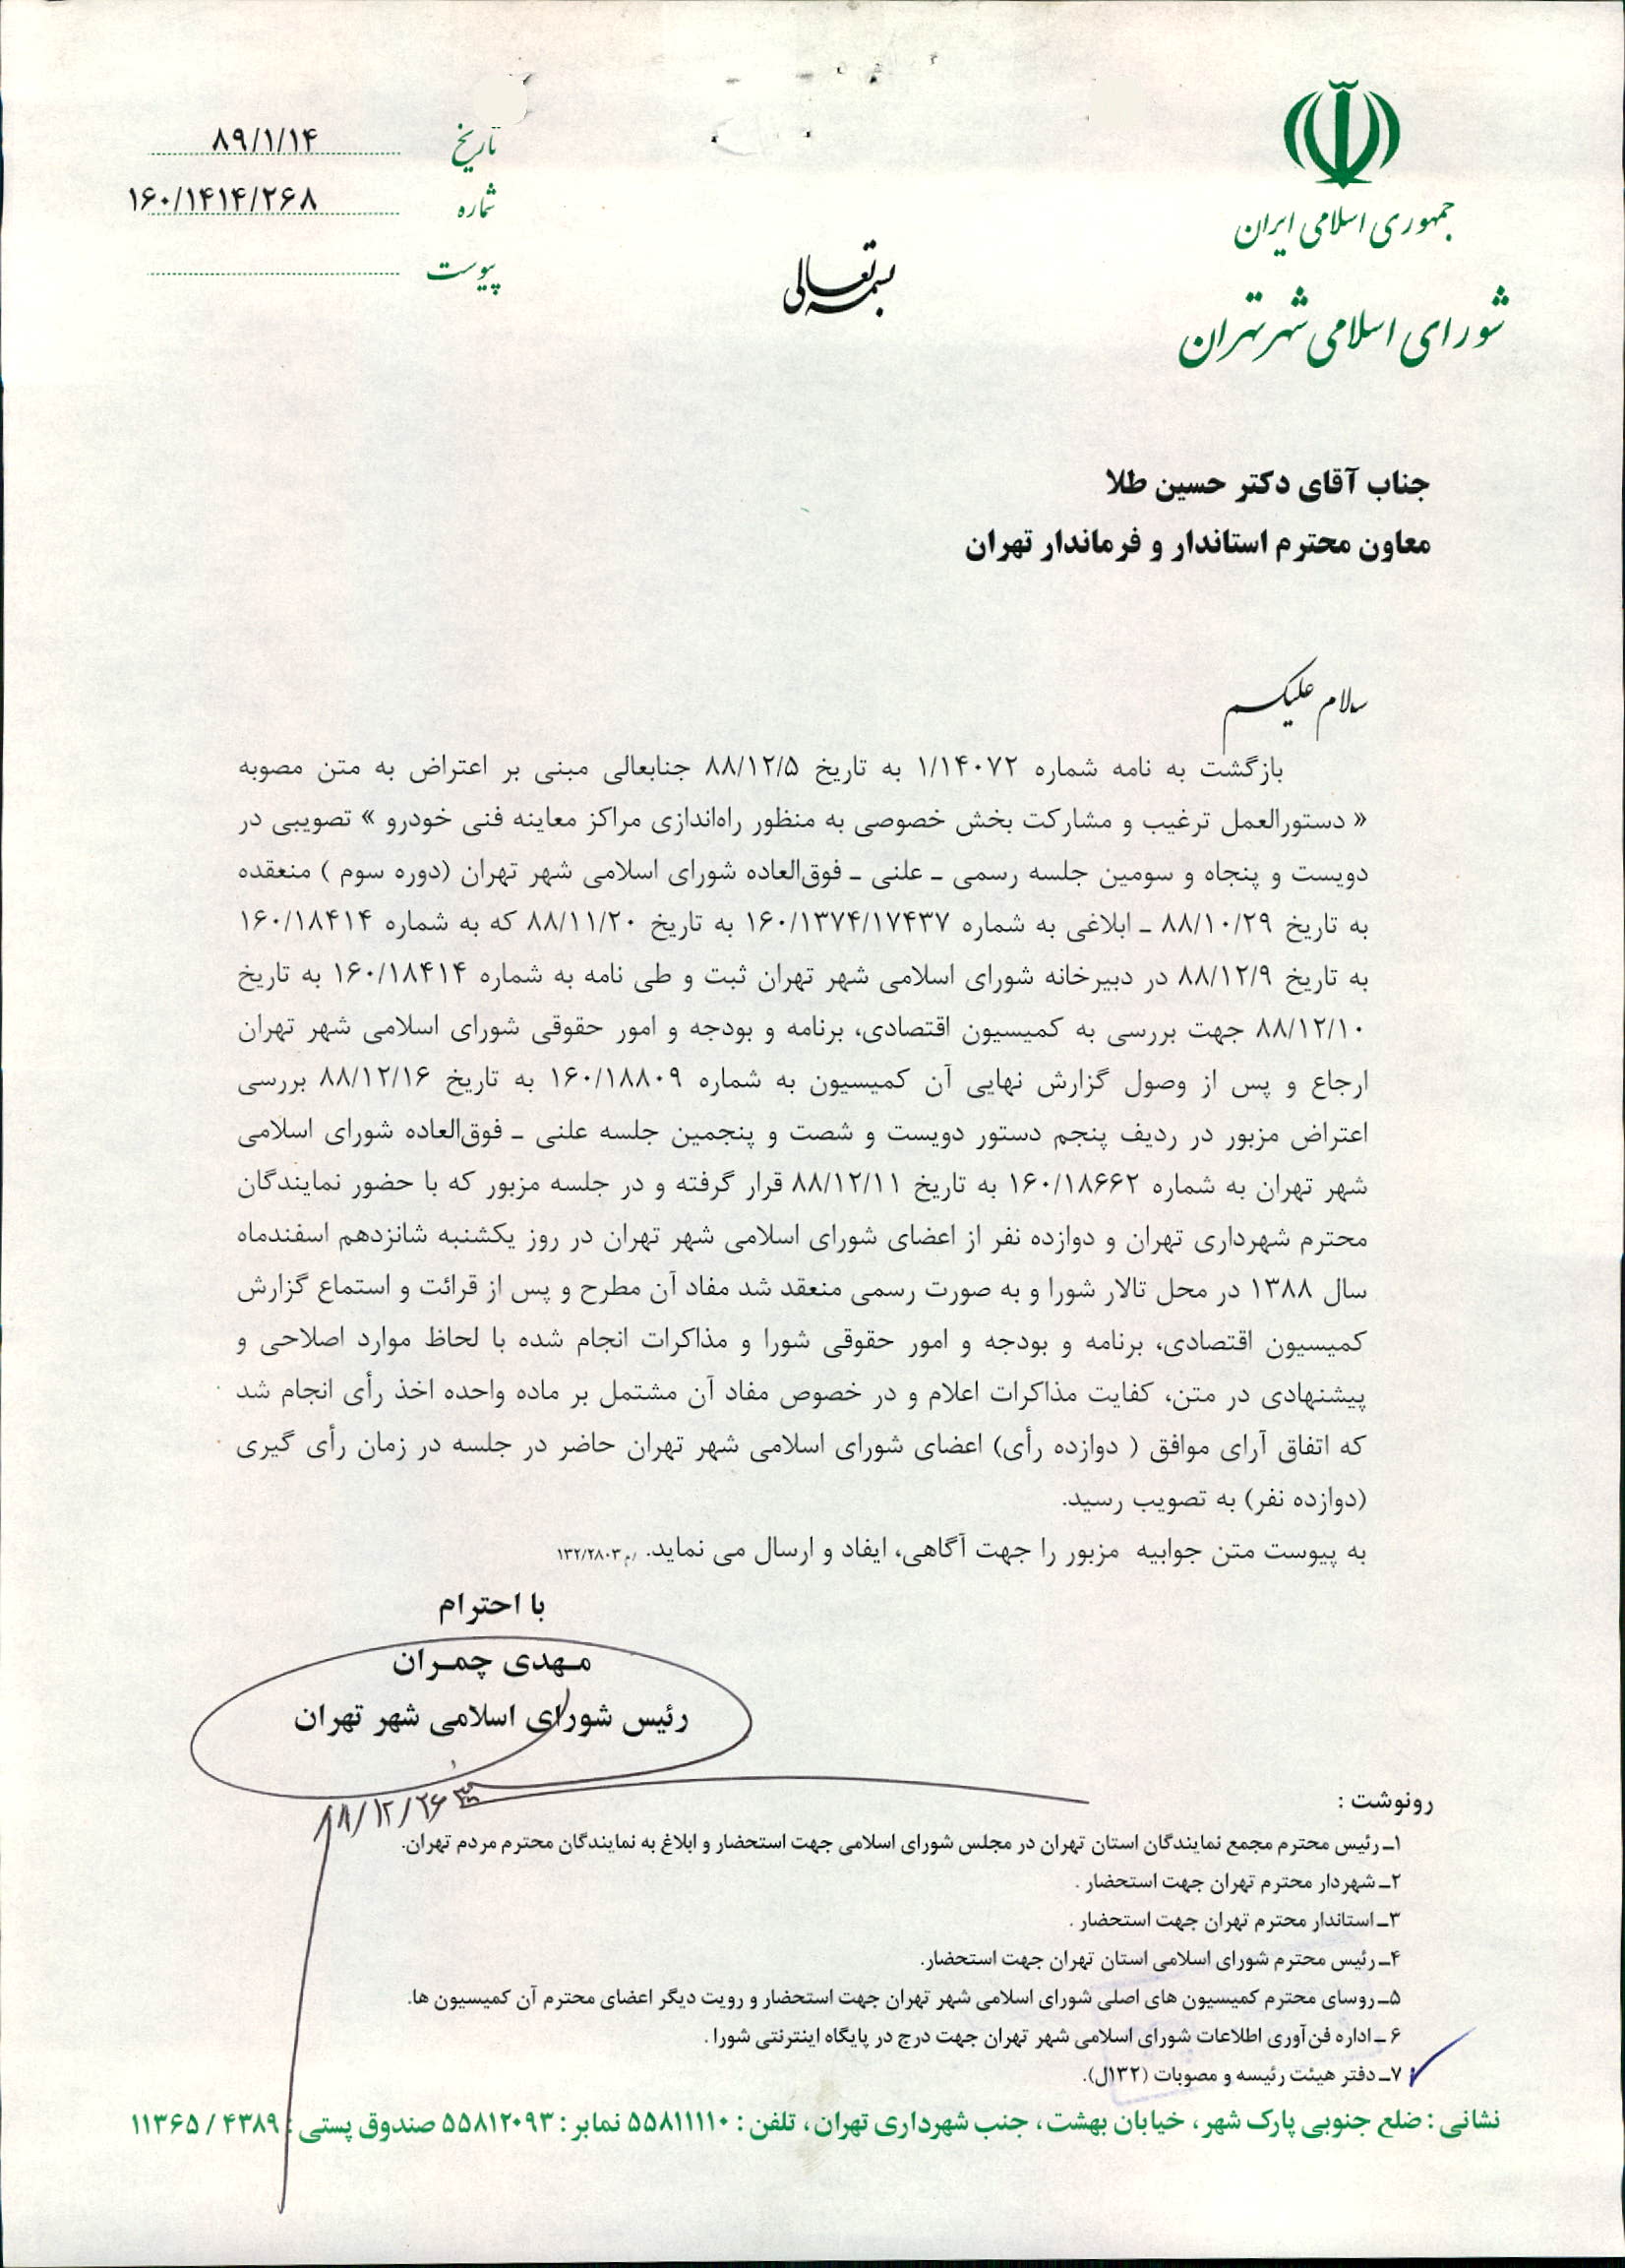 جمهوری اسلامی ایران
شورای اسلامی شهر تهران
بسمه تعالی
تاریخ ۸۹/۱/۱۴
شماره ۱۶۰/۱۴۱۴/۲۶۸
پیوست
جناب آقای دکتر حسین طلا
معاون محترم استاندار و فرماندار تهران
سلام علیکم
بازگشت به نامه شماره ۱/۱۴۰۷۲ به تاریخ ۸۸/۱۲/۵ جنابعالی مبنی بر اعتراض به متن مصوبه
« دستورالعمل ترغیب و مشارکت بخش خصوصی به منظور راه‌اندازی مراکز معاینه فنی خودرو » تصویبی در
دویست و پنجاه و سومین جلسه رسمی ـ علنی ـ فوق‌العاده شورای اسلامی شهر تهران (دوره سوم ) منعقده
به تاریخ ۸۸/۱۰/۲۹ ـ ابلاغی به شماره ۱۶۰/۱۳۷۴/۱۷۴۳۷ به تاریخ ۸۸/۱۱/۲۰ که به شماره ۱۶۰/۱۸۴۱۴
به تاریخ ۸۸/۱۲/۹ در دبیرخانه شورای اسلامی شهر تهران ثبت و طی نامه به شماره ۱۶۰/۱۸۴۱۴ به تاریخ
۸۸/۱۲/۱۰ جهت بررسی به کمیسیون اقتصادی، برنامه و بودجه و امور حقوقی شورای اسلامی شهر تهران
ارجاع و پس از وصول گزارش نهایی آن کمیسیون به شماره ۱۶۰/۱۸۸۰۹ به تاریخ ۸۸/۱۲/۱۶ بررسی
اعتراض مزبور در ردیف پنجم دستور دویست و شصت و پنجمین جلسه علنی ـ فوق‌العاده شورای اسلامی
شهر تهران به شماره ۱۶۰/۱۸۶۶۲ به تاریخ ۸۸/۱۲/۱۱ قرار گرفته و در جلسه مزبور که با حضور نمایندگان
محترم شهرداری تهران و دوازده نفر از اعضای شورای اسلامی شهر تهران در روز یکشنبه شانزدهم اسفندماه
سال ۱۳۸۸ در محل تالار شورا و به صورت رسمی منعقد شد مفاد آن مطرح و پس از قرائت و استماع گزارش
کمیسیون اقتصادی، برنامه و بودجه و امور حقوقی شورا و مذاکرات انجام شده با لحاظ موارد اصلاحی و
پیشنهادی در متن، کفایت مذاکرات اعلام و در خصوص مفاد آن مشتمل بر ماده واحده اخذ رأی انجام شد
که اتفاق آرای موافق ( دوازده رأی) اعضای شورای اسلامی شهر تهران حاضر در جلسه در زمان رأی گیری
(دوازده نفر) به تصویب رسید.
به پیوست متن جوابیه مزبور را جهت آگاهی، ایفاد و ارسال می نماید. /م ۱۳۲/۲۸۰۳
با احترام
مـهدی چمـران
رئیس شورای اسلامی شهر تهران
۸۸/۱۲/۲۶
رونوشت :
۱ـ رئیس محترم مجمع نمایندگان استان تهران در مجلس شورای اسلامی جهت استحضار و ابلاغ به نمایندگان محترم مردم تهران.
۲ـ شهردار محترم تهران جهت استحضار .
۳ـ استاندار محترم تهران جهت استحضار .
۴ـ رئیس محترم شورای اسلامی استان تهران جهت استحضار.
۵ـ روسای محترم کمیسیون های اصلی شورای اسلامی شهر تهران جهت استحضار و رویت دیگر اعضای محترم آن کمیسیون ها.
۶ ـ اداره فن‌آوری اطلاعات شورای اسلامی شهر تهران جهت درج در پایگاه اینترنتی شورا .
۷ـ دفتر هیئت رئیسه و مصوبات (۱۳۲ل).
نشانی : ضلع جنوبی پارک شهر ، خیابان بهشت ، جنب شهرداری تهران ، تلفن : ۵۵۸۱۱۱۱۰ نمابر : ۵۵۸۱۲۰۹۳ صندوق پستی : ۴۳۸۹ / ۱۱۳۶۵